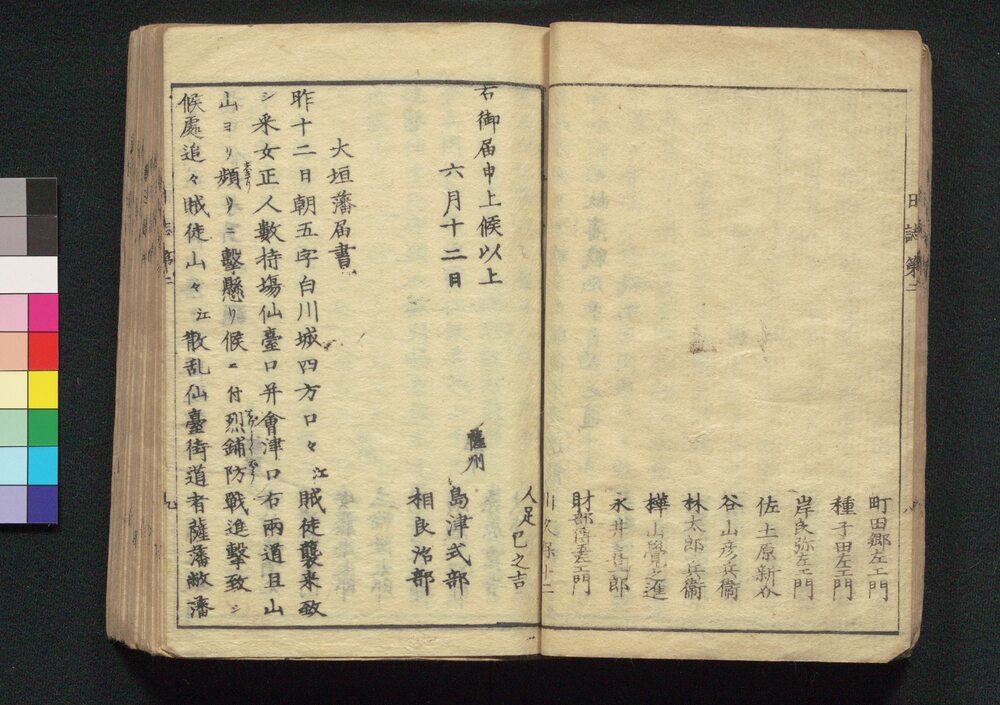 日誌第二
町田郷左エ門
種子田左エ門
岸良弥左エ門
佐土原新介
谷山彦兵衞
林太郎兵衞
樺山覺之進
永井 郎
財部傳五左エ門
川久保十二
人足 巳之吉
右御届申上候以上
六月十二日
薩州
島津式部
相良治部
大垣藩届書
昨十二日朝五字白川城四方口々江賊徒襲来致
シ釆女正人數持場仙臺口并會津口右兩道且山
山ヨリ頻リニ擊懸リ候ニ付烈鋪防戰進擊致シ
候處追々賊徒山々江散乱仙臺街道者薩藩敝藩
日誌第二
九